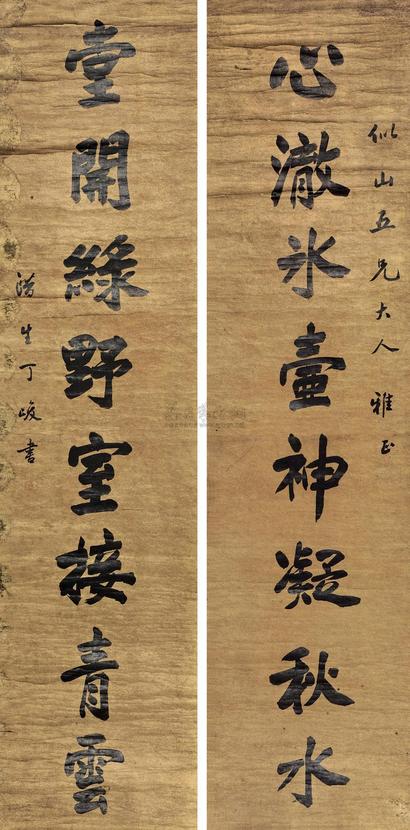 似山五兄大人雅正
心澈氷壺神凝秋水
堂開綠野室接青雲
生丁峻書